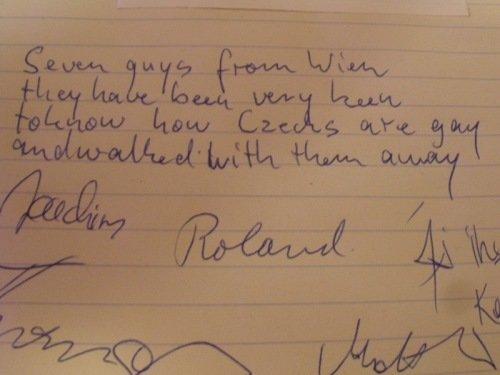 Seven guys from Wien
they have been very keen
toknow how Czechs are gay
andwalked with them away
Joachim
Roland